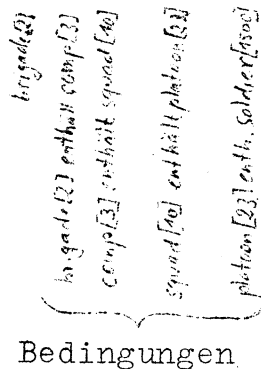 brigade[2]
brigade[2] enthält comp[3]
comp[3] enthält squad[10]
squad[10] enthält platoon[23]
platoon[23] enth. soldier[1500]
Bedingungen